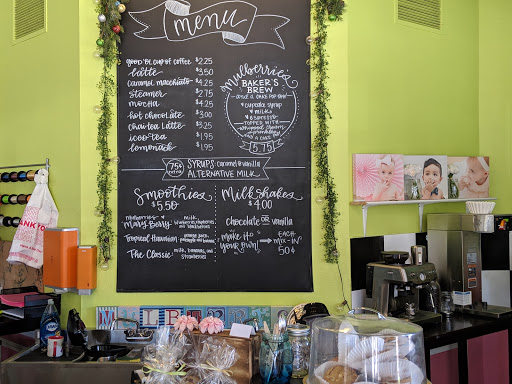 menu
good ol' cup of coffee $2.25
latte $3.50
caramel macchiato $4.25
steamer $2.75
mocha $4.25
hot chocolate $3.00
chai tea latte $3.25
iced tea $1.95
lemonade $1.95
Mulberries
BAKER'S
BREW
cupcake syrup
milk
espresso
TOPPED WITH
whipped cream
sprinkles
AND A CAKE POP
5.75
75¢ SYRUPS: caramel & vanilla
ALTERNATIVE MILK
Smoothies
$5.50
Mulberries
Mary Berry
milk,
Tropical Hawaiian
The Classic
milk, bananas, and
strawberries
MilkShakes
$4.00
chocolate OR vanilla
make it
your own
EACH
MIX-IN
50¢